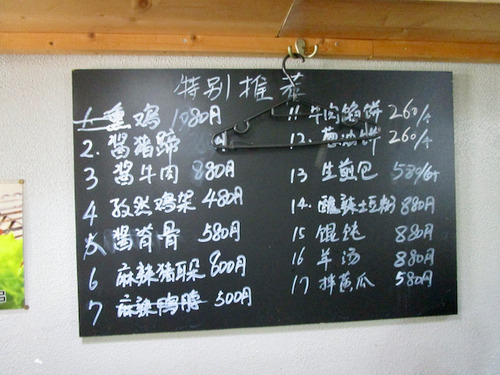 特别推荐
1 熏鸡 1080円
2. 酱猪蹄
3 酱牛肉 880円
4 孜然鸡架 480円
5 酱脊骨 580円
6 麻辣猪耳朵 600円
7 麻辣鸭脖 500円
11 牛肉馅饼 260/个
12. 葱油饼 260/个
13 生煎包 580/6个
14. 酸辣土豆粉 880円
15 馄饨 880円
16 羊汤 880円
17 拌黄瓜 580円